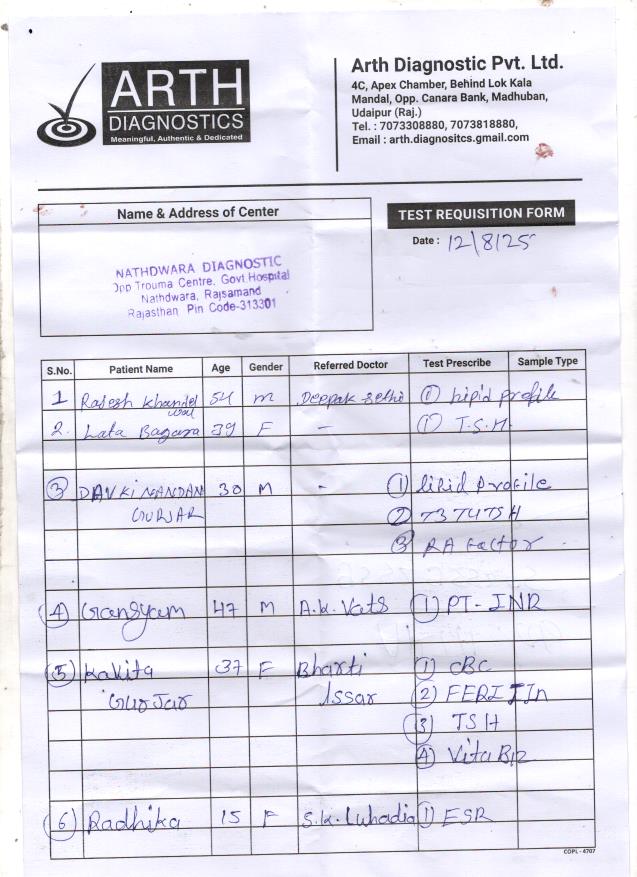 ARTH
DIAGNOSTICS
Meaningful, Authentic & Dedicated
Arth Diagnostic Pvt. Ltd.
4C, Apex Chamber, Behind Lok Kala
Mandal, Opp. Canara Bank, Madhuban,
Udaipur (Raj.)
Tel. : 7073308880, 7073818880,
Email : arth.diagnositcs.gmail.com
Name & Address of Center
NATHDWARA DIAGNOSTIC
Opp Trouma Centre, Govt Hospital
Nathdwara, Rajsamand
Rajasthan Pin Code-313301
TEST REQUISITION FORM
Date : 12/8/25
S.No. Patient Name Age Gender Referred Doctor Test Prescribe Sample Type
1 Rajesh Khandel 54 M Deepak Sethi (1) Lipid Profile
wal
2. Lata Bagara 39 F - (1) T.S.H
(3) DAVKINANDAN 30 M - (1) Lipid Profile
GURJAR (2) T3T4TSH
(3) RA Factor
(4) Gansyam 47 M A.K. Vats (1) PT-INR
(5) Kavita 37 F Bharti (1) CBC
Gurjar Issar (2) FERITIn
(3) TSH
(4) Vita B12
(6) Radhika 15 F S.K. Luhadia (1) ESR
COPL - 4707